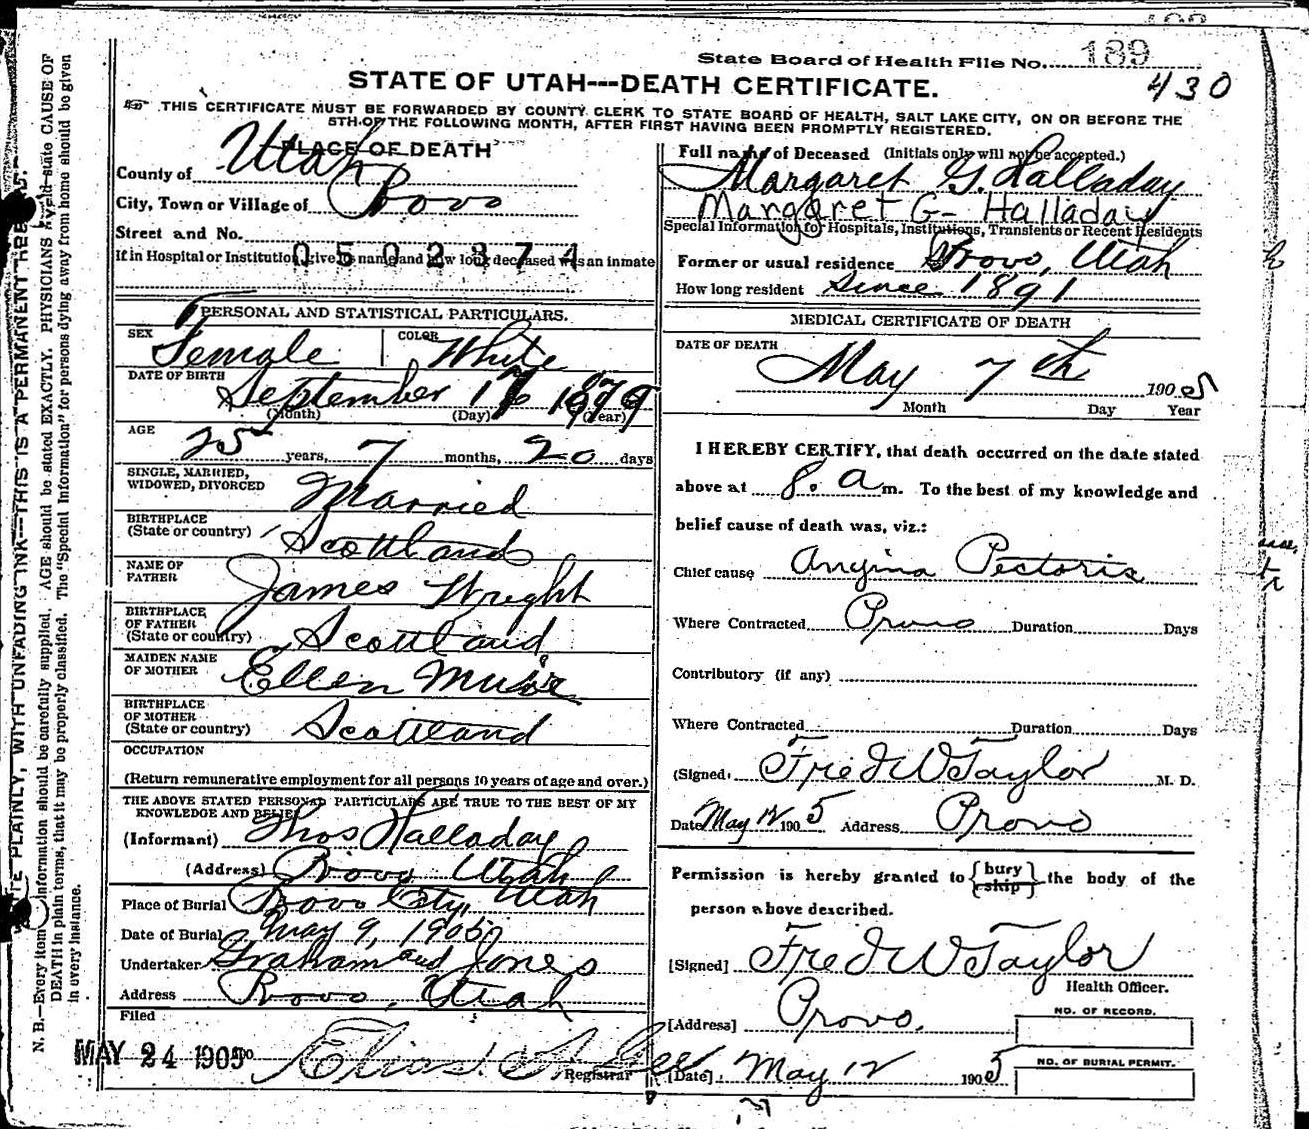 State Board of Health File No. 189
430
STATE OF UTAH---DEATH CERTIFICATE.
THIS CERTIFICATE MUST BE FORWARDED BY COUNTY CLERK TO STATE BOARD OF HEALTH, SALT LAKE CITY, ON OR BEFORE THE
5TH OF THE FOLLOWING MONTH, AFTER FIRST HAVING BEEN PROMPTLY REGISTERED.
PLACE OF DEATH
County of Utah
City, Town or Village of Provo
Street and No.
0502374
If in Hospital or Institution, give its name and how long deceased was an inmate
PERSONAL AND STATISTICAL PARTICULARS.
SEX Female COLOR White
DATE OF BIRTH September 17 1879
(Month) (Day) (Year)
AGE 25 years, 7 months, 20 days
SINGLE, MARRIED,
WIDOWED, DIVORCED Married
BIRTHPLACE
(State or country) Scottland
NAME OF
FATHER James Wright
BIRTHPLACE
OF FATHER
(State or country) Scottland
MAIDEN NAME
OF MOTHER Ellen
BIRTHPLACE
OF MOTHER
(State or country) Scottland
OCCUPATION
(Return remunerative employment for all persons 10 years of age and over.)
THE ABOVE STATED PERSONAL PARTICULARS ARE TRUE TO THE BEST OF MY
KNOWLEDGE AND BELIEF
(Informant) Thos Halladay
(Address) Provo Utah
Place of Burial Provo City, Utah
Date of Burial May 9, 1905
Undertaker Graham and Jones
Address Provo, Utah
Filed
MAY 24 1905 190 Elias A. Gee
Registrar
Full name of Deceased (Initials only will not be accepted.)
Margaret G. Halladay
Margaret G- Halladay
Special Information for Hospitals, Institutions, Transients or Recent Residents
Former or usual residence Provo, Utah
How long resident Since 1891
MEDICAL CERTIFICATE OF DEATH
DATE OF DEATH
May 7th 1905
Month Day Year
I HEREBY CERTIFY, that death occurred on the date stated
above at 8. a m. To the best of my knowledge and
belief cause of death was, viz.:
Chief cause Angina Pectoris
Where Contracted Provo Duration Days
Contributory (if any)
Where Contracted Duration Days
(Signed) Fred W Taylor M. D.
Date May 12 1905 Address Provo
Permission is hereby granted to {bury
ship} the body of the
person above described.
[Signed] Fred W Taylor
Health Officer.
[Address] Provo.
NO. OF RECORD.
[Date] May 12 1905
NO. OF BURIAL PERMIT.
WRITE PLAINLY, WITH UNFADING INK—THIS IS A PERMANENT RECORD.
N. B.—Every item of information should be carefully supplied. AGE should be stated EXACTLY. PHYSICIANS should state CAUSE OF
DEATH in plain terms, that it may be properly classified. The "Special Information" for persons dying away from home should be given
in every instance.